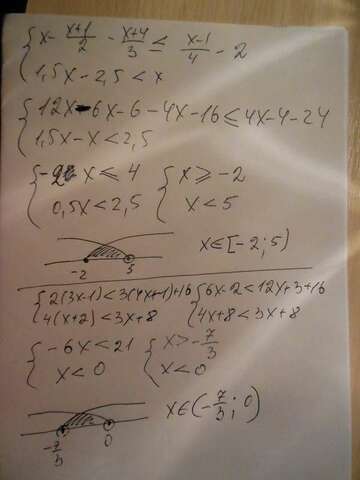 { x - (x+1)/2 - (x+4)/3 ≤ (x-1)/4 - 2
1,5x - 2,5 < x
{ 12x - 6x - 6 - 4x - 16 ≤ 4x - 4 - 24
1,5x - x < 2,5
{ -2x ≤ 4 { x ≥ -2
0,5x < 2,5 x < 5
-2 5 x∈[-2;5)
{ 2(3x-1) < 3(4x+1)+16 { 6x-2 < 12x+3+16
4(x+2) < 3x+8 4x+8 < 3x+8
{ -6x < 21 { x > -7/3
x < 0 x < 0
-7/3 0 x∈(-7/3; 0)